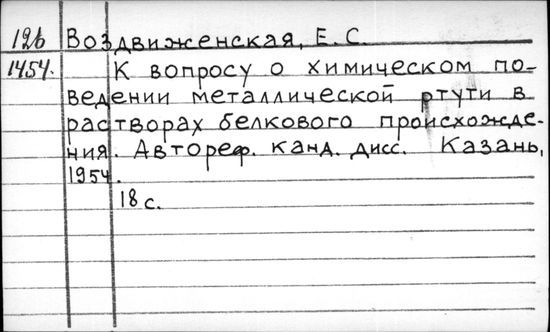 126 Воздвиженская, Е. С.
1454. К вопросу о химическом по-
ведении металлической ртути в
растворах белкового происхожде-
ния. Автореф. канд. дисс. Казань,
1954.
18 с.